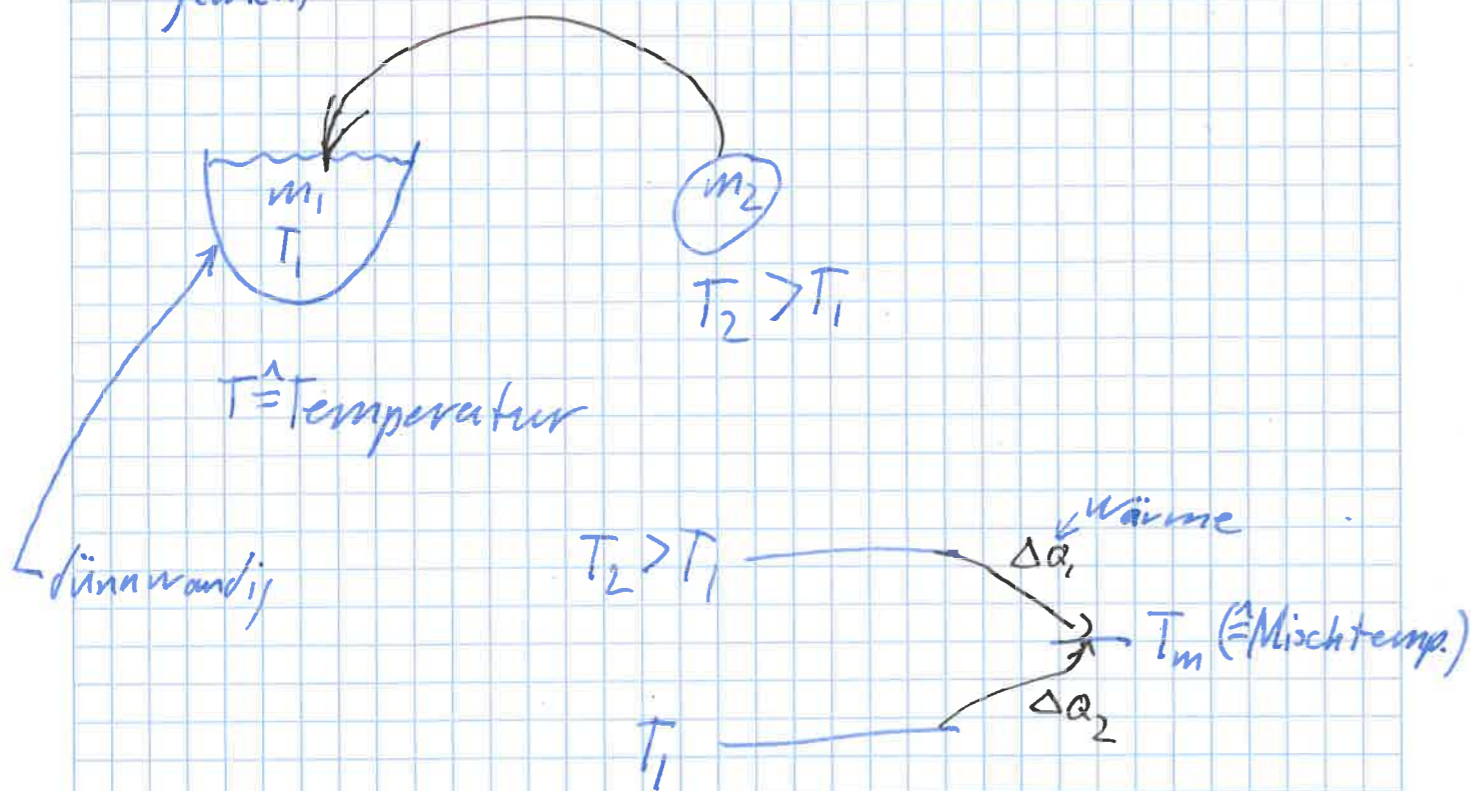 m₁
T₁
m₂
T₂ > T₁
T ≙ Temperatur
dünnwandig
Wärme
T₂ > T₁
ΔQ₁
Tₘ (≙ Mischtemp.)
ΔQ₂
T₁